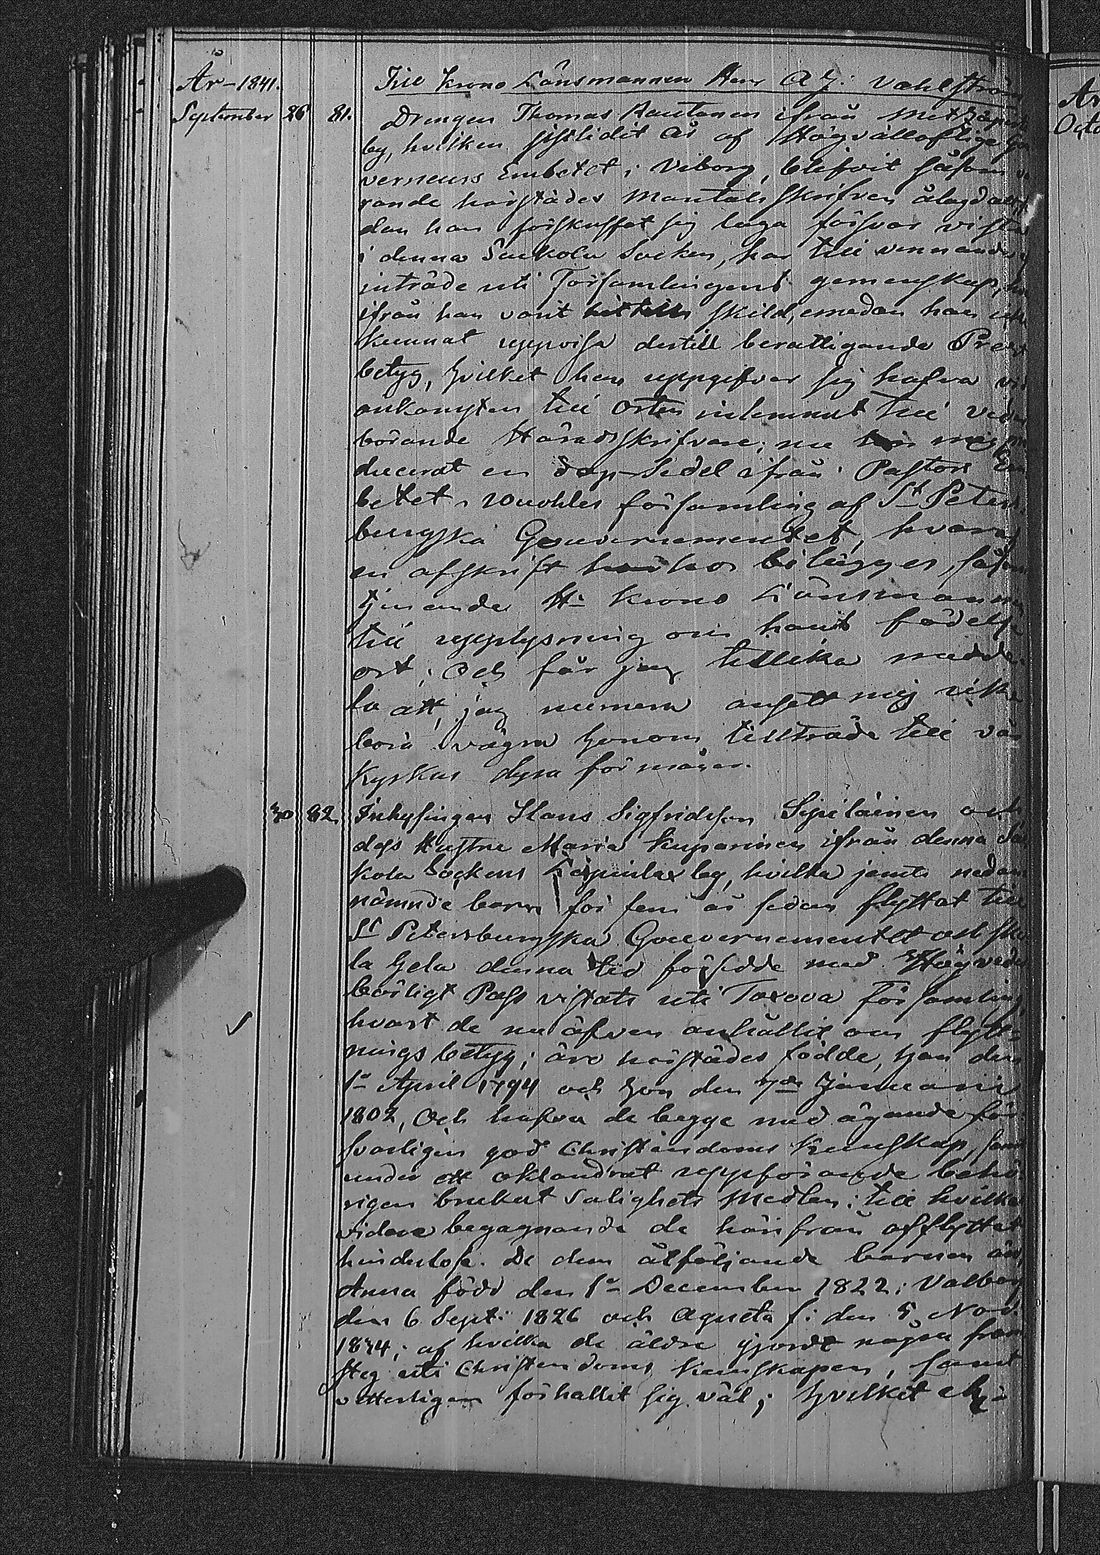 År - 1841. Till Krono Länsmannen Herr A J: Vahlström
September 26 81. Drengen Thomas Rautanen ifrån
by, hvilken sistlidit År af Högvälloflige Gu
verneurs Embetet i Viborg, blifvit såsom va
rande härstädes Mantals skrifven ålagd att
dan han förskaffat sig laga försvar vistas
i denna Sakkola Socken, har till vinnande
inträde uti Församlingens gemenskap,
ifrån han varit hittills skild, emedan han icke
kunnat uppvisa dertill berättigande Prest
betyg, hvilket han uppgifver sig hafva vid
ankomsten till Orten inlemnat till veder
börande Häradsskrifvare; nu mig pro
ducerat en dop-Sedel ifrån Pastors Em
betet i Wuohles församling af St Peters
burgska Gouvernementet, hvaraf
en afskrift hos bilägges, såsom
tjenande Hr Krono Länsmannen
till upplysning om hans födelse
ort. Och får jag tillika medde-
la att jag numera ansett mig icke
böra vägra honom tillträde till vår
Kyrkas dyra förmåner.
30 82. Inhysingen Hans Sigfridsson Sipiläinen och
dess Hustru Maria Kuparinen ifrån denna Sak
kola Sockens by, hvilka jemte nedan
nämnde barn för fem år sedan flyttat till
St Petersburgska Gouvernementet och sko
la hela denna tid försedde med Högveder
börligt Pass vistats uti Toxova Församling
hvart de nu äfven anhållit om flytt-
nings betyg; äro härstädes födde, han den
1a April 1794 och hon den 7de Januarii
1802, Och hafva de begge med ägande för
svarligen god Christendoms Kunskap, samt
under ett oklandrat uppförande behö
rigen brukat Salighets Medlen: till hvilkas
vidare begagnande de härifrån afflyttat
hinderlöse. De dem åtföljande barnen äro,
Anna född den 1a December 1822; Valborg
den 6 Sept: 1826 och Agneta f: den 5 Nov:
1834; af hvilka de äldre gjordt några fram
steg uti Christendoms Kunskapen, samt
vetterligen förhållit sig väl; hvilket